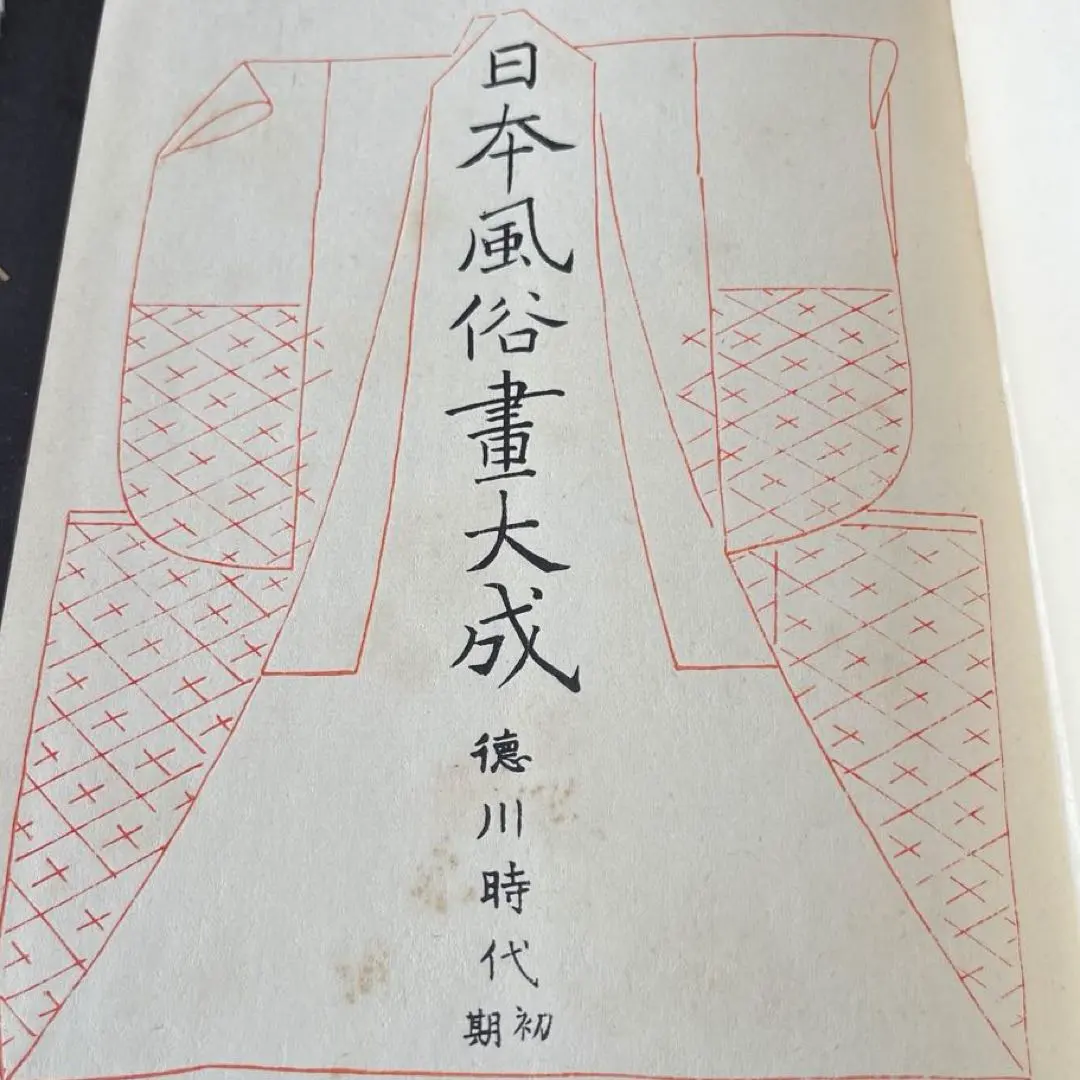 日本風俗畫大成
德川時代初期